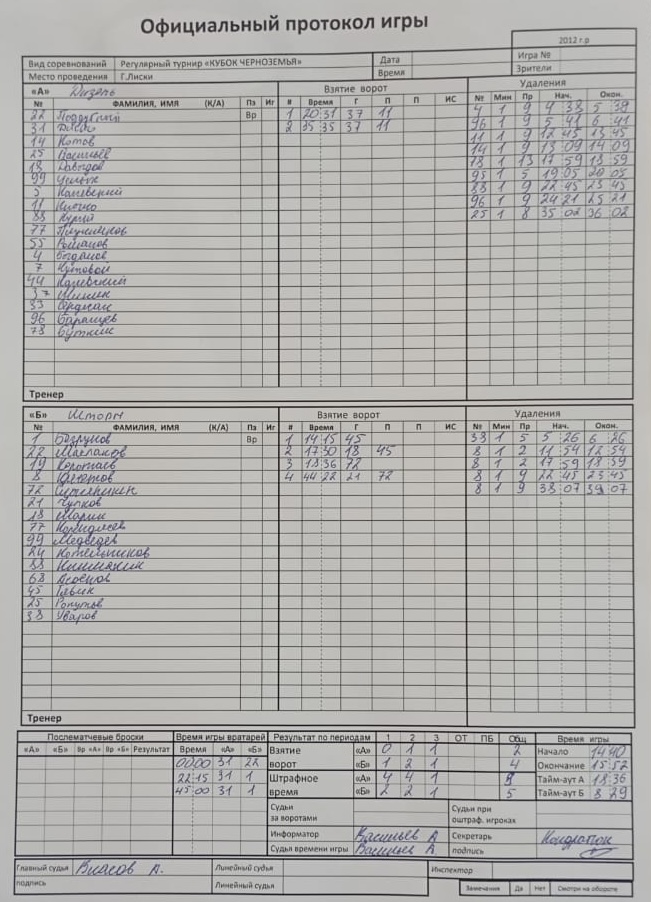 Официальный протокол игры
2012 г.р
Вид соревнований Регулярный турнир «КУБОК ЧЕРНОЗЕМЬЯ» Дата Игра №
Место проведения Г.Лиски Время Зрители
«А» Дизель Взятие ворот Удаления
№ ФАМИЛИЯ, ИМЯ (К/А) Пз Иг # Время Г П П ИС № Мин Пр Нач. Окон.
22 Поддубный Вр 1 20 31 37 11 4 1 9 4 39 5 39
31 2 35 35 37 11 96 1 9 5 41 6 41
14 Котов 11 1 9 12 45 13 45
25 Васильев 14 1 9 13 09 14 09
18 Давыдов 78 1 13 17 59 18 59
99 95 1 5 19 05 20 05
5 Каневский 88 1 9 22 45 23 45
11 96 1 9 24 21 25 21
88 25 1 8 35 02 36 02
77
55 Романов
4 Богданов
7 Кутовой
44 Каневский
37
33
96 Баранцев
78 Бутник
Тренер
«Б» Шторм Взятие ворот Удаления
№ ФАМИЛИЯ, ИМЯ (К/А) Пз Иг # Время Г П П ИС № Мин Пр Нач. Окон.
1 Вр 1 14 15 45 33 1 5 5 26 6 26
22 2 17 30 18 45 8 1 2 11 54 12 54
19 3 18 36 72 8 1 2 17 59 18 59
8 4 44 22 21 72 8 1 9 22 45 23 45
72 8 1 9 38 07 39 07
21 Чупков
18 Шарин
77
99 Медведев
24 Котельников
88
68
45
25
38 Уваров
Тренер
Послематчевые броски Время игры вратарей Результат по периодам 1 2 3 ОТ ПБ Общ Время игры
«А» «Б» Вр «А» Вр «Б» Результат Время «А» «Б» Взятие «А» 0 1 1 2 Начало 14 40
00 00 31 22 ворот «Б» 1 2 1 4 Окончание 15 52
22 15 31 1 Штрафное «А» 4 4 1 9 Тайм-аут А 18 36
45 00 31 1 время «Б» 2 2 1 5 Тайм-аут Б 8 29
Судьи за воротами Судьи при оштраф. игроках
Информатор Васильев А Секретарь
Судья времени игры Васильев А подпись
Главный судья Власов А. Линейный судья Инспектор
подпись Линейный судья Замечания Да Нет Смотри на обороте